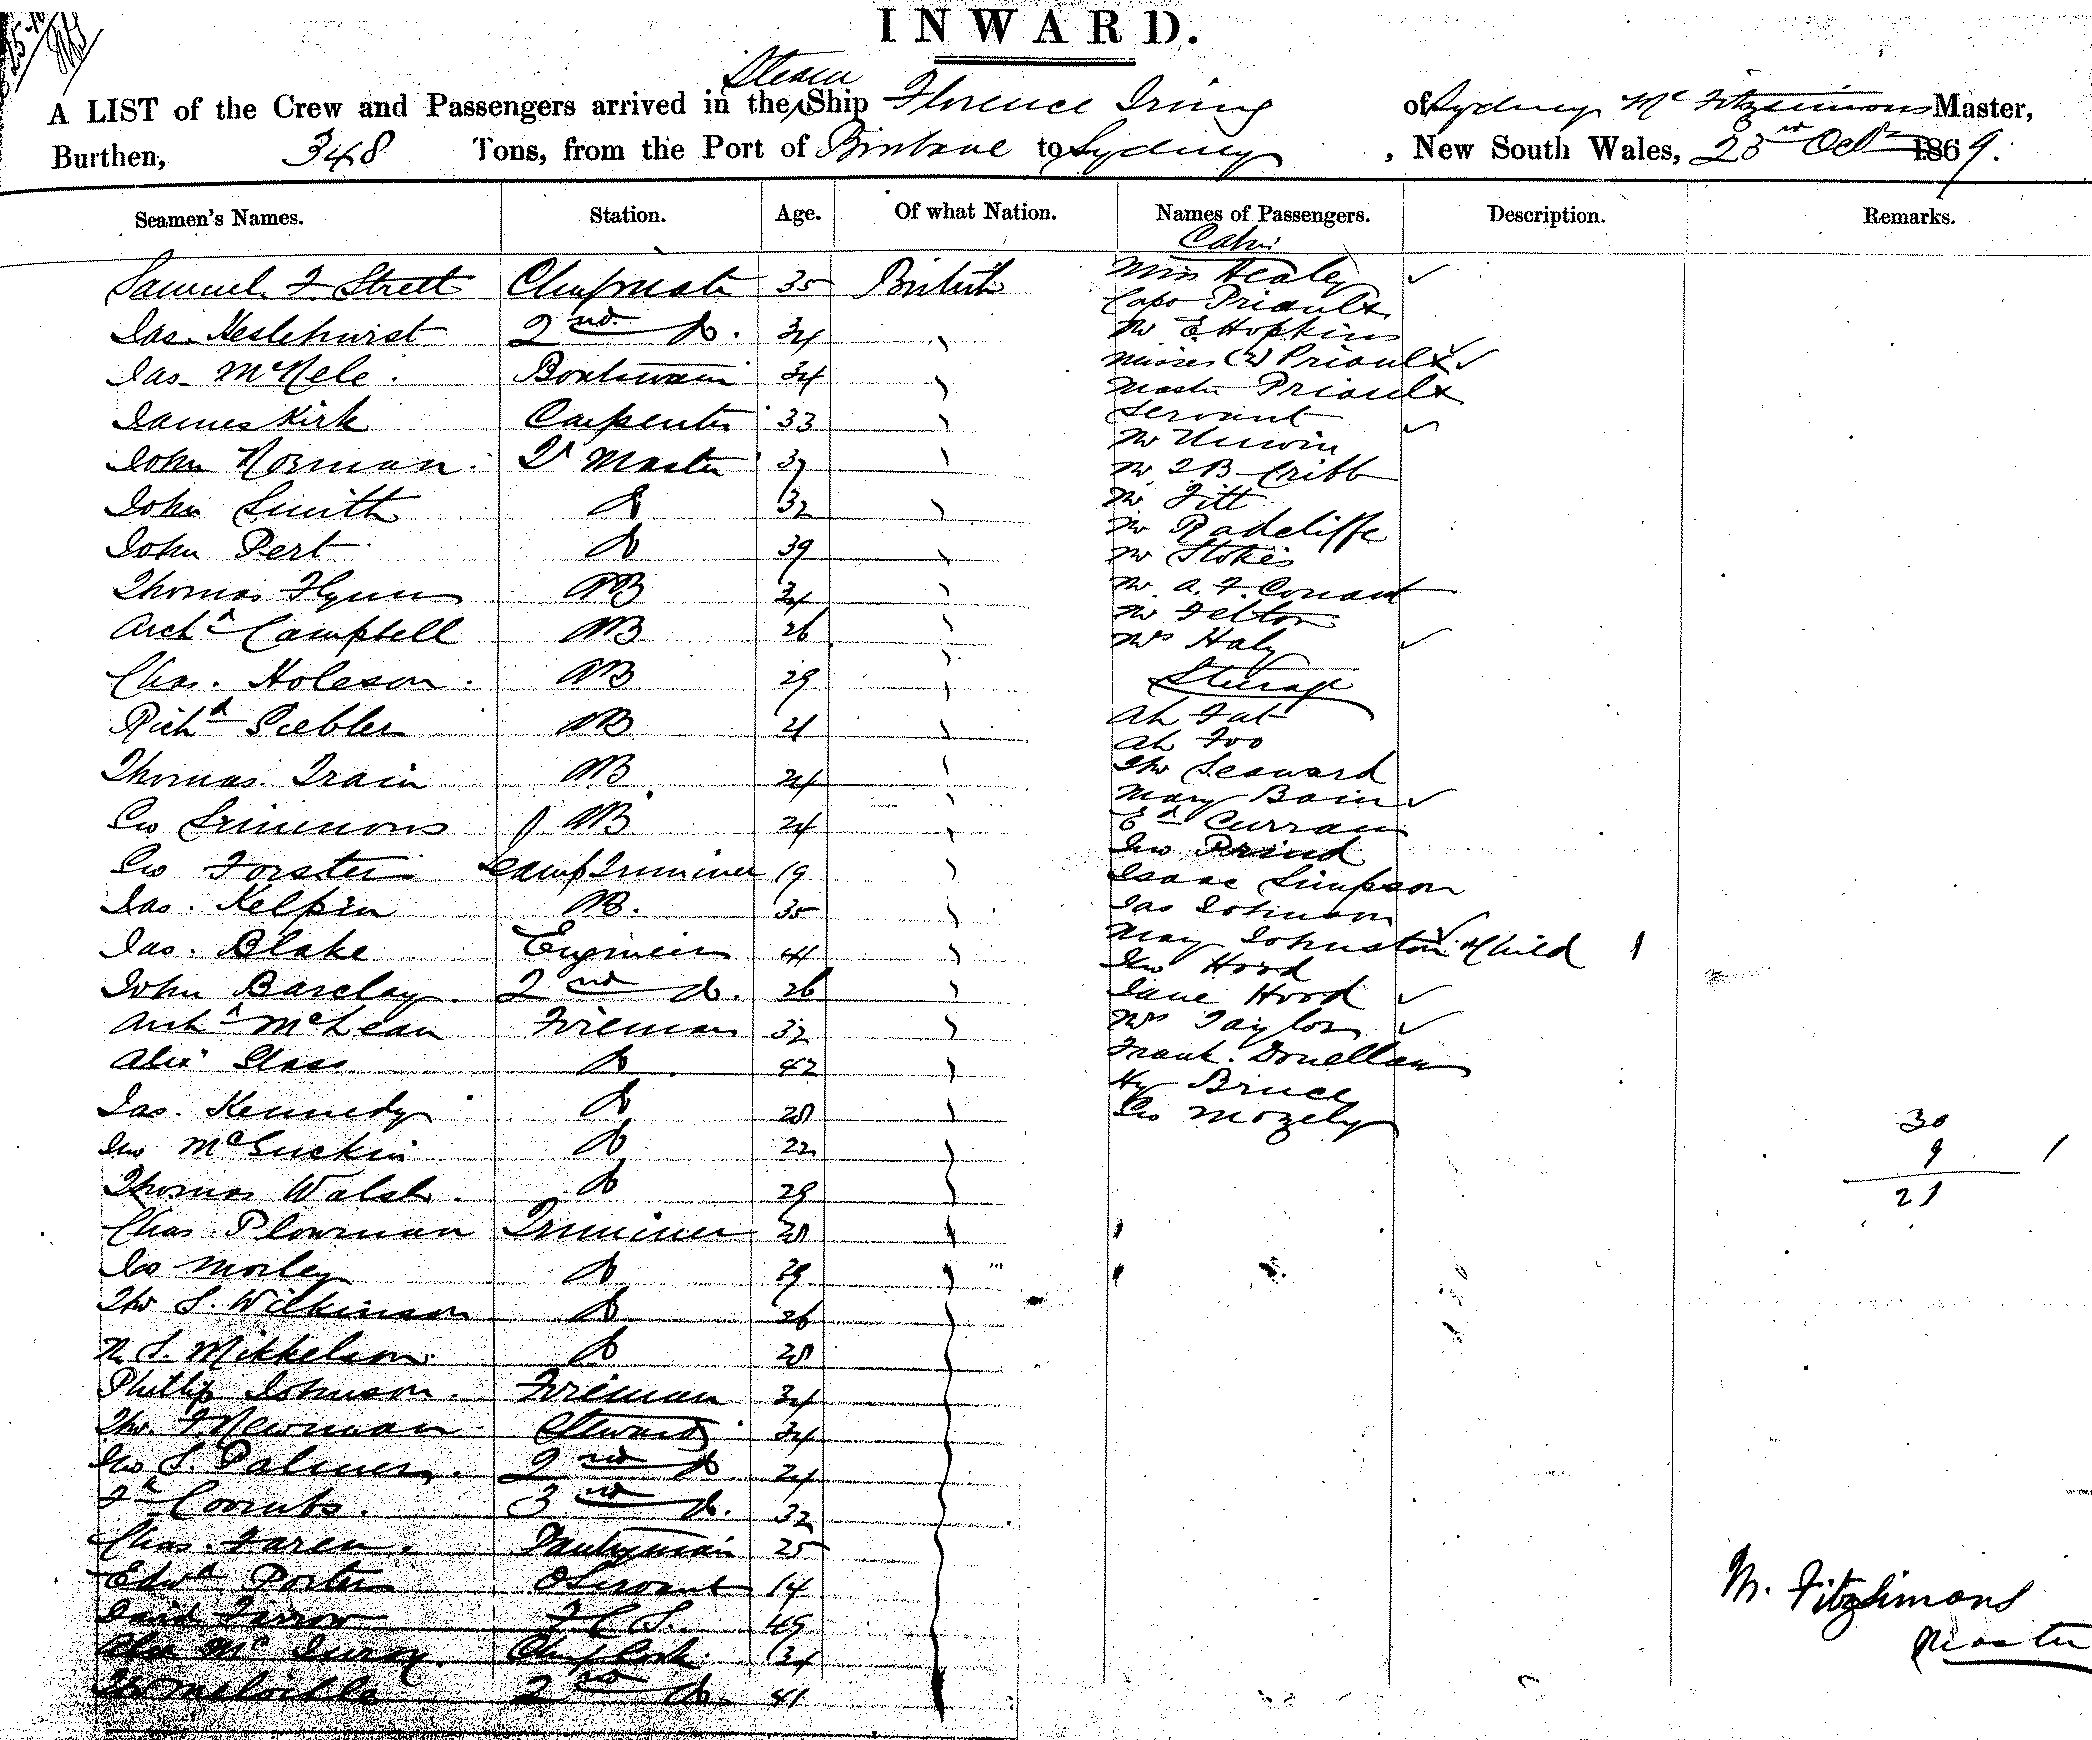 INWARD.
Steam
A LIST of the Crew and Passengers arrived in the Ship Florence Irving of Sydney, Mc Fitzsimons Master,
Burthen, 348 Tons, from the Port of Brisbane to Sydney, New South Wales, 23rd Octr 1869.
Seamen's Names. Station. Age. Of what Nation. Names of Passengers. Description. Remarks.
Cabin
Samuel F Strett Chief mate 35 British Miss Healey
Capt Priaulx
Jas. Heslehurst 2nd Do. 34 Mr E Hopkins
Misses (2) Priaulx
Jas McNele. Boatswain 34 Master Priaulx
James Kirk Carpenter 33 Servant
Mr Unwin
John Norman Qr Master 37 Mr T B Cribb
John Smith Do 32 Mr Fitt
Mr Radcliffe
John Pert Do 39 Mr Stokes
Thomas Flynn AB 34 Mr A. F. Conant
Mr Felton
Archd Campbell AB 26 Mrs Haly
Chas. Holeson AB 29 Steerage
Richd Peebler AB 21 Ah Fat
Ah Foo
Thomas Train AB 24 Thos Seaward
Mary Bain
Geo Simmons AB 24 Ed Curran
Jno
Geo Forster Lamp Trimmer 19 Isaac Simpson
Jas. Kelpin AB. 35 Jas Johnson
Jas. Blake Engineer 44 May Johnston & Child 1
Jno Hood
John Barclay 2nd Do. 26 Jane Hood
Archd McLean Fireman 32 Mrs Taylor
Alexr Glass Do. 42 Frank Donellan
Hy Bruce
Jas. Kennedy Do 28 Geo Mozely
30
Jno McGuckin Do 22
9 1
Thomas Walsh Do 29
21
Chas Plowman Trimmer 28
Geo Morley Do 29
Thos S. Wilkinson Do 26
N. S. Mikkelson Do 28
Phillip Johnson. Fireman 34
Thos. F Newman Steward 34
Jno S. Palmer. 2nd Do 24
Fk Coombs. 3rd Do. 32
Chas. Faren. Pantryman 25
Edwd Porter Servant 14
David Farrow F C S. 49
Alex Mc Chief Cook 34
2nd Do. 41
M. Fitzsimons
Master